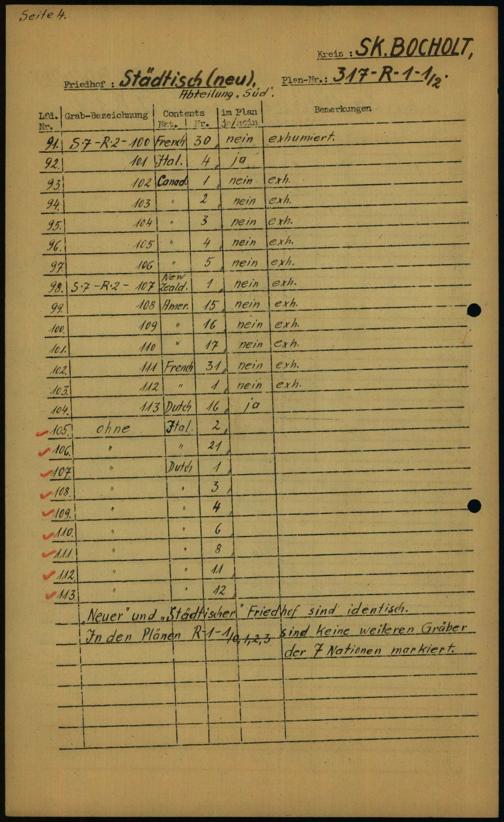 Seite 4.
Kreis : SK. BOCHOLT,
Friedhof : Städtisch (neu). Plan-Nr.: 317-R-1-1/2.
Abteilung „Süd".
Lfd. Nr. Grab-Bezeichnung Contents Nat. Nr. im Plan ja/nein Bemerkungen
91. S.7-R.2-100 French 30 nein exhumiert.
92. 101 Ital. 4 ja
93 102 Canad. 1 nein exh.
94 103 " 2 nein exh.
95. 104 " 3 nein exh.
96. 105 " 4 nein exh.
97 106 " 5 nein exh.
98. S.7-R.2-107 New Zeald. 1 nein exh.
99. 108 Amer. 15 nein exh.
100. 109 " 16 nein exh.
101. 110 " 17 nein exh.
102. 111 French 31 nein exh.
103. 112 " 1 nein exh.
104. 113 Dutch 16 ja
105. ohne Ital. 2
106. " " 21
107 " Dutch 1
108. " " 3
109. " " 4
110. " " 6
111. " " 8
112 " " 11
113 " " 12
„Neuer" und „Städtischer" Friedhof sind identisch.
In den Plänen R-1-1/0,1,2,3 sind keine weiteren Gräber
der 7 Nationen markiert.